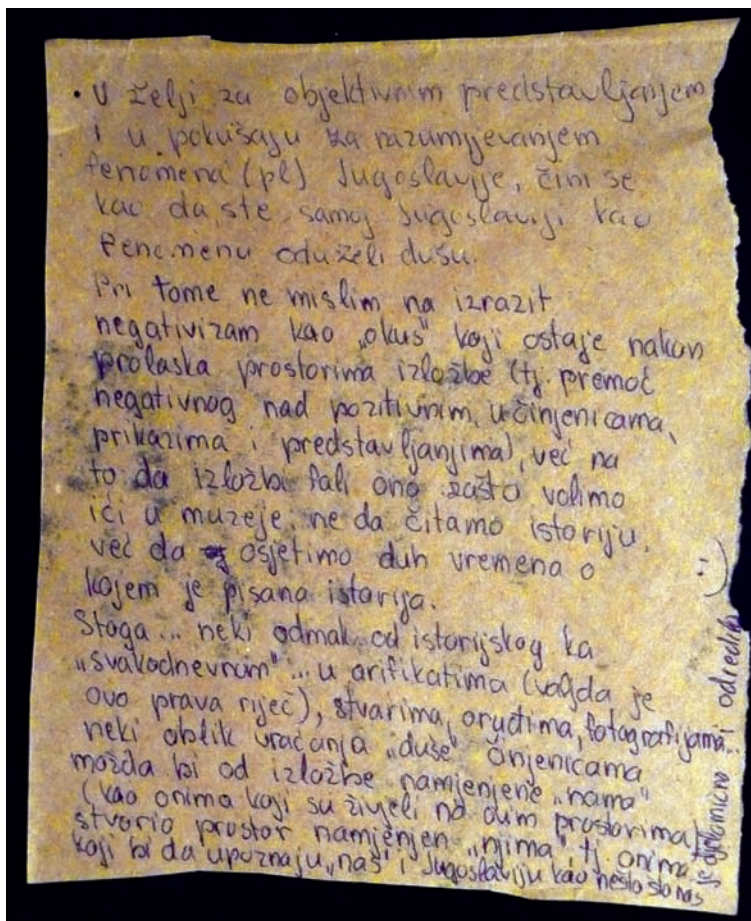 • U želji za objektivnim predstavljanjem
i u pokušaju za razumjevanjem
fenomena (pl) Jugoslavije, čini se
kao da ste samoj Jugoslaviji kao
fenomenu oduzeli dušu.
Pri tome ne mislim na izrazit
negativizam kao „okus" koji ostaje nakon
prolaska prostorima izložbe (tj. premoć
negativnog nad pozitivnim, u činjenicama,
prikazima i predstavljanjima), već na
to da izložbi fali ono zašto volimo
ići u muzeje, ne da čitamo istoriju,
već da osjetimo duh vremena o
kojem je pisana istorija.
Stoga... neki odmak od istorijskog ka
„svakodnevnom"... u arifikatima (valjda je
ovo prava riječ), stvarima, oruđima, fotografijama...
neki oblik vraćanja „duše" činjenicama
možda bi od izložbe namjenjene „nama"
(kao onima koji su živjeli na ovim prostorima)
stvorio prostor namjenjen „njima", tj. onima
koji bi da upoznaju „nas" i Jugoslaviju kao nešto što nas
je djelomično i odredilo :)